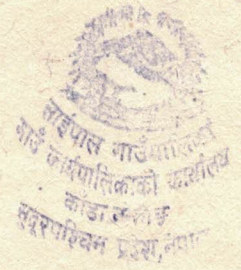 साइपाल गाउँपालिका
गाउँ कार्यपालिकाको कार्यालय
काँडा
सुदूरपश्चिम प्रदेश, नेपाल